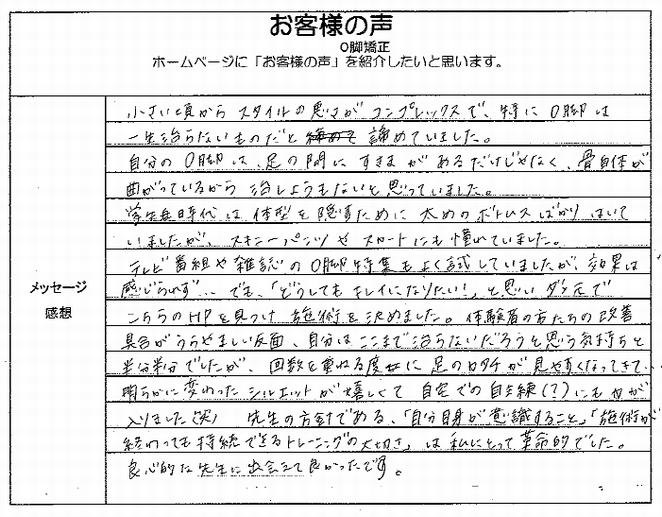 お客様の声
O脚矯正
ホームページに「お客様の声」を紹介したいと思います。
メッセージ
感想
小さい頃から スタイルの悪さが コンプレックスで、特に O脚は
一生治らないものだと 諦めていました。
自分の O脚は、足の間に すきまが あるだけじゃなく、骨自体が
曲がっているから 治しようもないと思っていました。
学生時代は 体型を 隠すために 太めのボトムス ばかり はいて
いましたが、スキニーパンツや スカートにも 憧れていました。
テレビ番組や 雑誌の O脚特集も よく試していましたが、効果は
感じられず… でも、「どうしても キレイになりたい!」と思い ダメ元で
こちらの HPを見つけ 施術を 決めました。体験者の方たちの 改善
具合が うらやましい反面、自分は ここまで 治らないだろうと思う気持ちと
半分半分でしたが、回数を重ねる度に 足のカタチが 見やすくなってきて…
明らかに変わった シルエットが 嬉しくて 自宅での自主練(?)にも 力が
入りました(笑) 先生の方針である、「自分自身が意識すること」「施術が
終わっても 持続できるトレーニングの大切さ」は 私にとって 革命的でした。
良心的な先生に出会えて 良かったです。